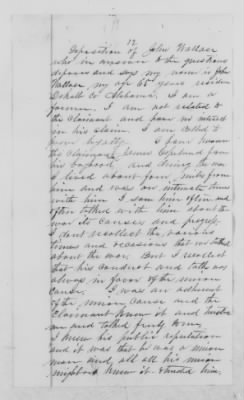 12
Deposition of John Wallace
who in answer to the questions
deposes and says my name is John
Wallace my age 65 years residence
Dekalb Co Alabama, I am a
farmer. I am not related to
the Claimant and have no interest
in his claim. I am called to
prove loyalty. I have known
the Claimant James Copeland from
his boyhood and during the war
I lived about four miles from
him and was on intimate terms
with him I saw him often and
often talked with him about the
war its causes and progress.
I dont recollect the various
times and occasions that we talked
about the war. But I recollect
that his conduct and talk was
always in favor of the union
cause. I was an adherent
of the union cause and the
Claimant knew it and
me and talked freely to me.
I knew his public reputation
and it was that he was a union
man and all his union
neighbors knew it & him.